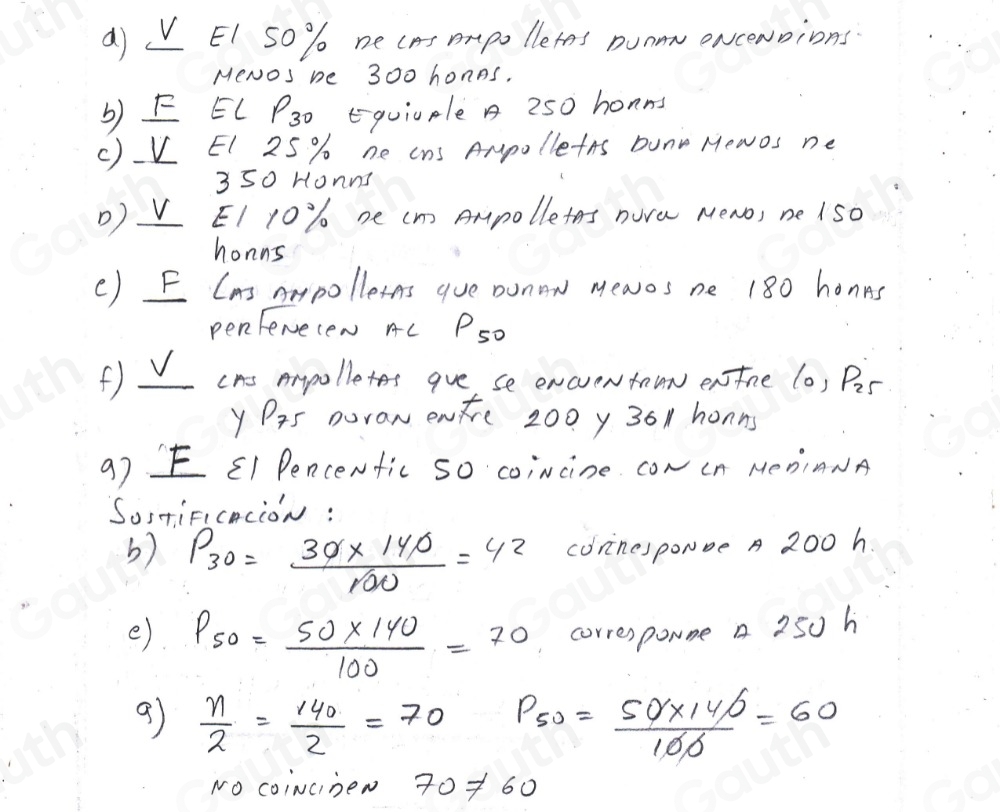 a) V El 50% de las ampolletas duran encendidas
menos de 300 horas.
b) F El P30 equivale a 250 horas
c) V El 25% de las ampolletas dura menos de
350 horas
D) V El 10% de las ampolletas dura menos de 150
horas
e) F Las ampolletas que duran menos de 180 horas
pertenecen al P50
f) V Las ampolletas que se encuentran entre los P25
y P75 duran entre 200 y 361 horas
g) F El Percentil 50 coincide con la mediana
Justificación :
b) P30 = 30 x 140 / 100 = 42 corresponde a 200 h.
e) P50 = 50 x 140 / 100 = 70, corresponde a 250 h
g) n/2 = 140/2 = 70 P50 = 50x140 / 100 = 60
No coinciden 70 ≠ 60